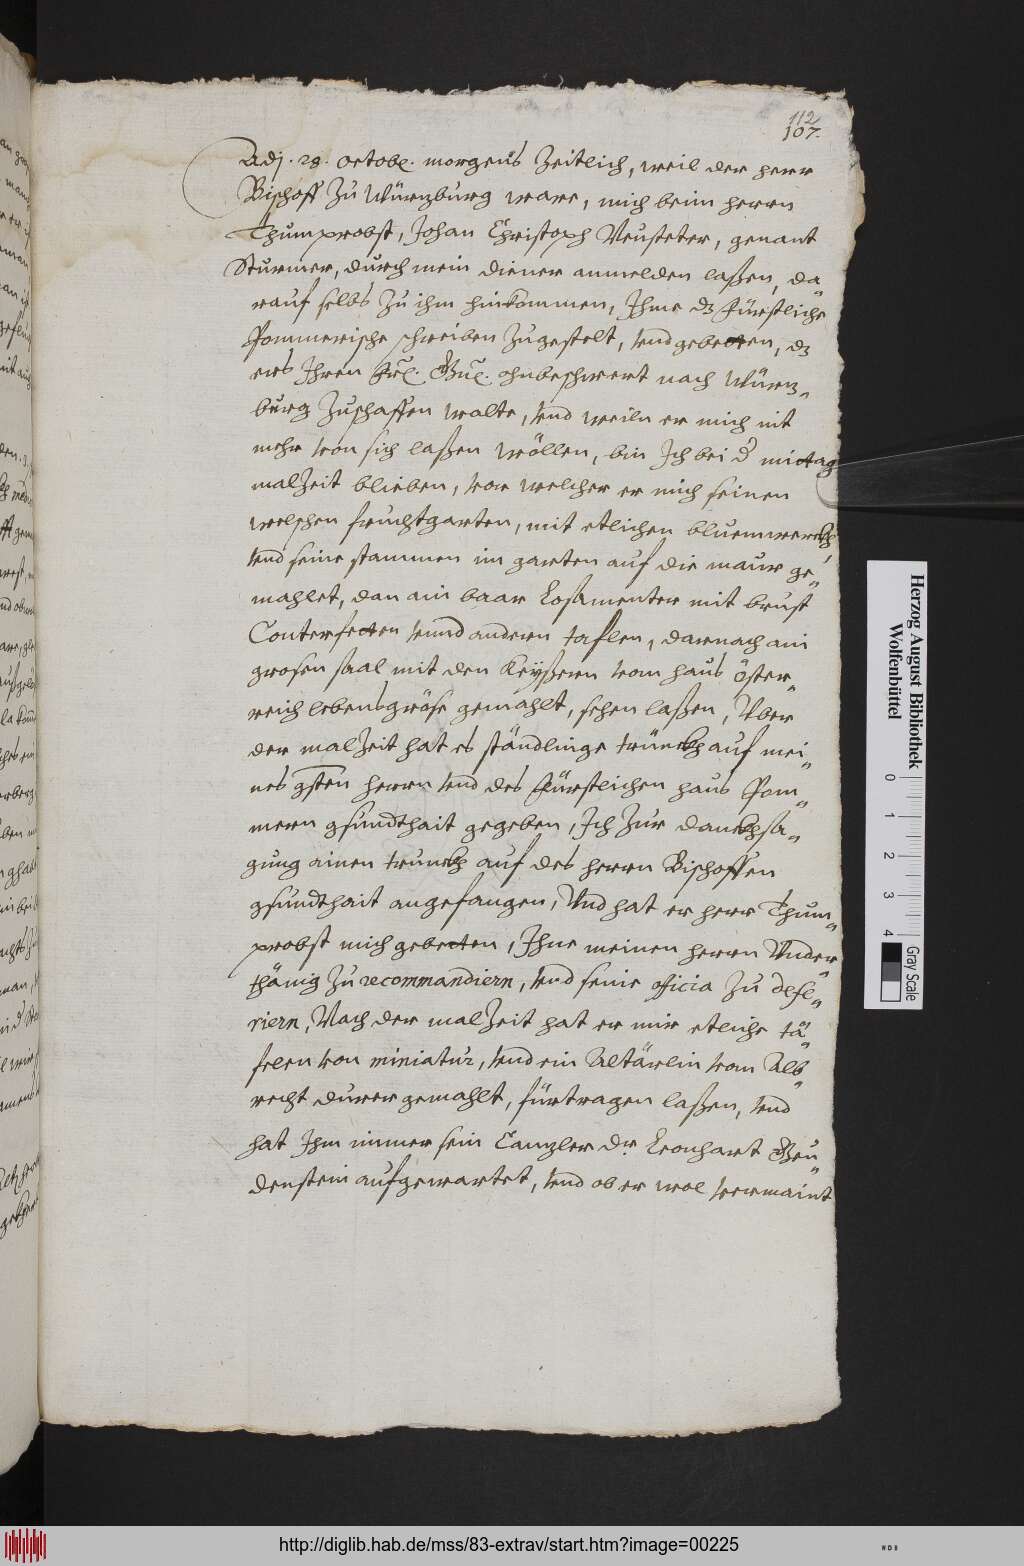 112
107.
Adj. 28. octob. morgens Zeitlich, weil der herr
Bischoff Zu Würzburg ware, mich beim herrn
Thumprobst, Johan Christoph Neusteter, genant
Sturmer, durch mein diener anmelden laßen, da„
rauf selbs Zu ihm hinkommen, Ihme dz Fürstliche
Pommerische schreiben Zugestelt, vnd gebetten, dz
ers Ihren Frl. Gn. ohnbeschwert nach Würz„
burg Zuschaffen wolte, vnd weiln er mich nit
mehr von sich laßen wöllen, bin Ich bei d mittag
malZeit blieben, vor welcher er mich seinen
welschen fruchtgarten, mit etlichen bluemwerckh,
vnd seine stammen im garten auf die maur ge„
mahlet, dan ain baar Losamenter mit brust
Conterfetten vnnd andern taflen, darnach ain
grosen saal mit den Keyßern vom haus öster„
reich lebensgröse gemahlt, sehen laßen, Vber
der malZeit hat es ständlinge trünckh auf mei„
nes gsten herrn vnd des Fürstlichen haus Pom„
mern gsundthait gegeben, Ich Zur danckhsa„
gung ainen trunckh auf des herrn Bischoffen
gsundthait angefangen, Vnd hat er herr Thum„
probst mich gebetten, Ihne meinen herrn Vnder„
thänig Zu recommandiern, vnd seine officia Zu defe„
riern, Nach der malZeit hat er mir etliche tä„
felen von miniatur, vnd ein Altärlin vom Alb„
recht durer gemahlt, fürtragen laßen, vnd
hat Ihm immer sein Canzler Dr. Leonhart Geu„
denstein aufgewartet, vnd ob er wol vermaint
Herzog August Bibliothek
Wolfenbüttel
0 1 2 3 4
Gray Scale
http://diglib.hab.de/mss/83-extrav/start.htm?image=00225
WDB